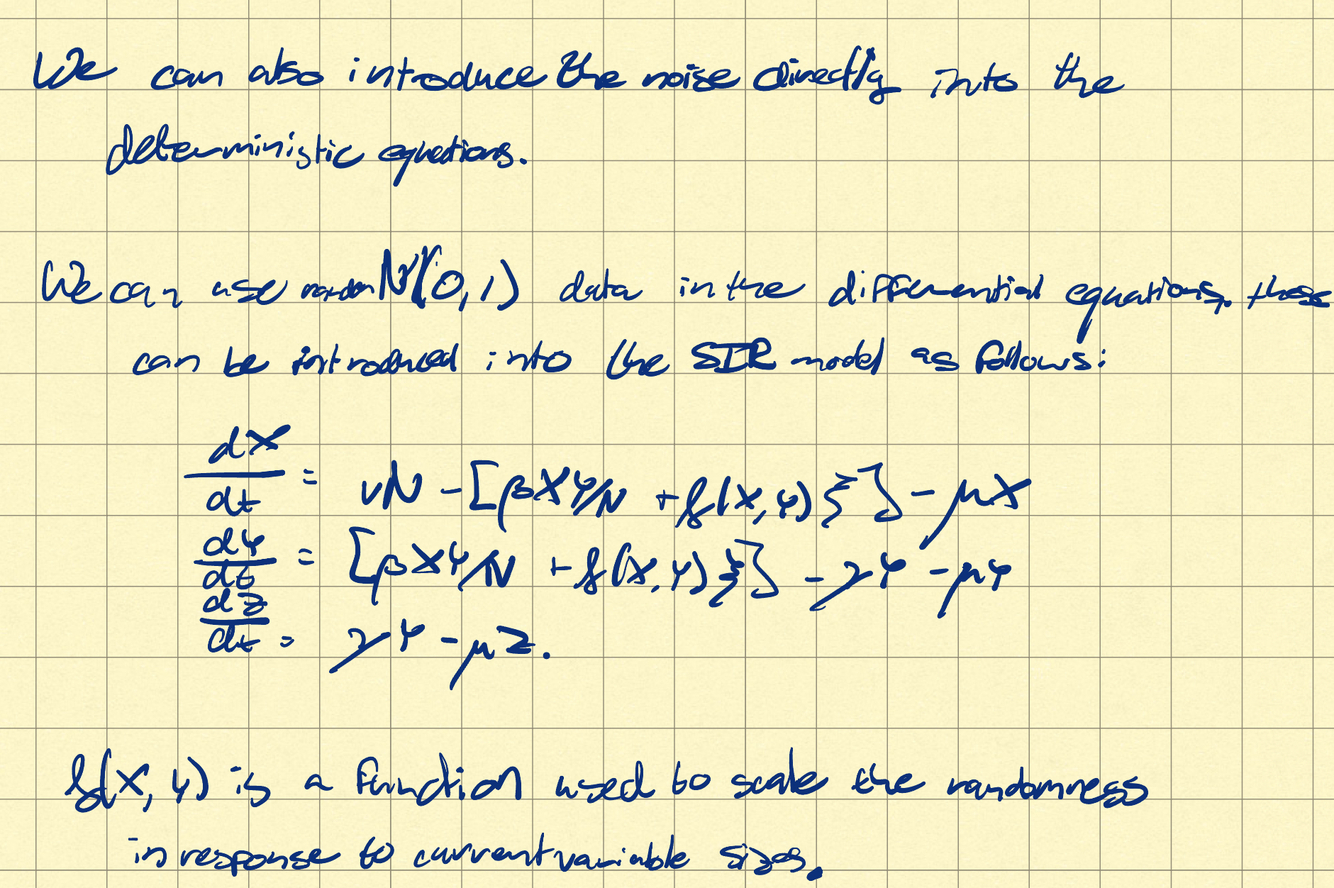 We can also introduce the noise directly into the
deterministic equations.
We can use random N(0,1) data in the differential equations, these
can be introduced into the SIR model as follows:
dX/dt = νN - [βXY/N + f(X,Y)ξ] - μX
dY/dt = [βXY/N + f(X,Y)ξ] - γY - μY
dZ/dt = γY - μZ.
f(X,Y) is a function used to scale the randomness
in response to current variable sizes.